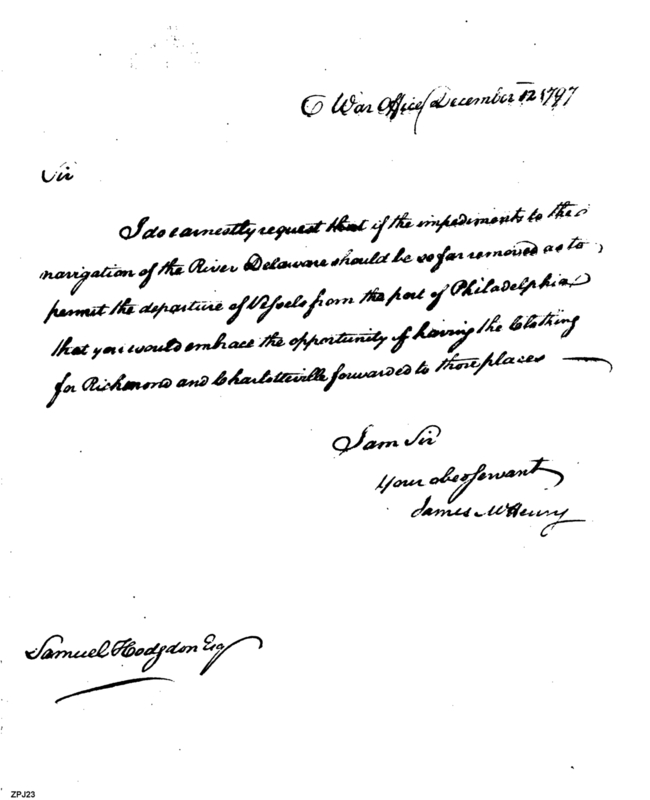 War Office December 12 1797
Sir
I do earnestly request that if the impediments to the
navigation of the River Delaware should be so far removed as to
permit the departure of Vessels from the port of Philadelphia,
that you would embrace the opportunity of having the Clothing
for Richmond and Charlotteville forwarded to those places
I am Sir
Your obed servant
James McHenry
Samuel Hodgdon Esq
ZPJ23